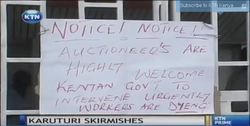 KTN
Subscribe to KTN Kenya
NOTICE! NOTICE!
AUCTIONEER'S ARE
HIGHLY WELCOME
KENYAN GOV'T TO
INTERVENE URGENTLY
WORKERS ARE DYING
KARUTURI SKIRMISHES
KTN
PRIME